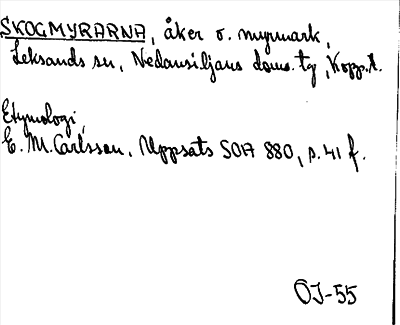 SKOGMYRARNA, åker o. myrmark,
Leksands sn, Nedansiljans doms. tg, Kopp.l.
Etymologi,
E. M. Carlsson, Uppsats SOA 880, s. 41 f.
ÖJ-55